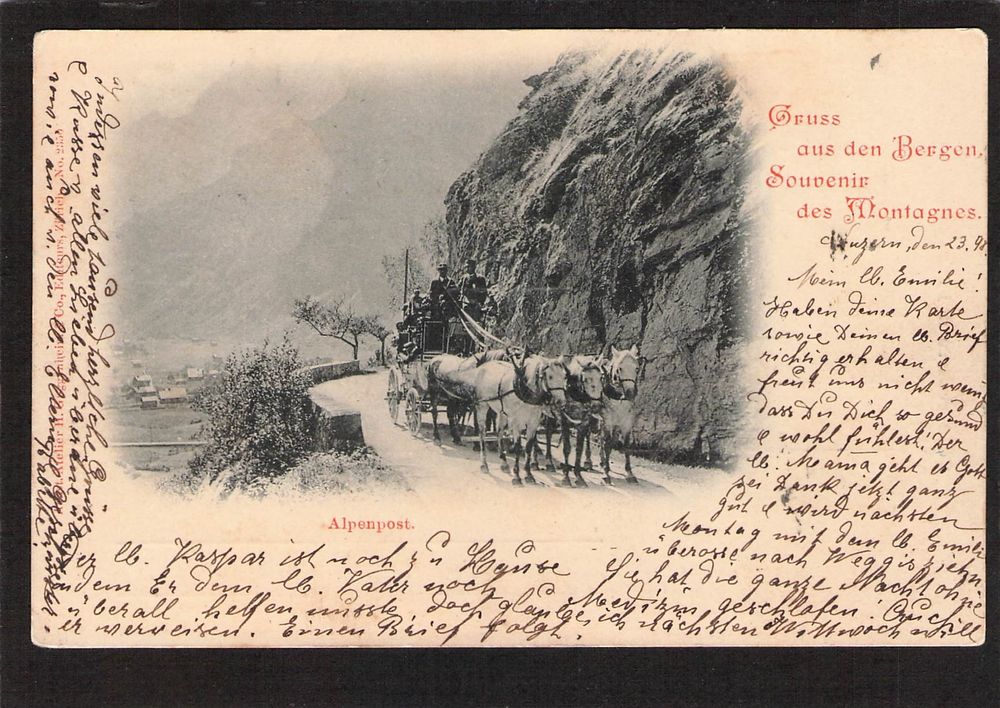 Gruss
aus den Bergen.
Souvenir
des Montagnes.
Luzern, den 23.
Mein lb. Emilie!
Haben deine Karte
sowie Deinen lb. Brief
richtig erhalten &
freut uns nicht wenig
dass Du Dich so gesund
& wohl fühlest. Der
lb. Mama geht es Gott
sei Dank jetzt ganz
gut & wird nächsten
Montag mit dem lb. Emilie
nach Weggis ziehn
Sie hat die ganze Nacht ohne
Medizin geschlafen.
ich nächsten Mittwoch will
Alpenpost.
Der lb. Kaspar ist noch zu Hause
indem Er dem lb. Vater noch
überall helfen musste doch glaub
er verreisen. Einen Brief folgt.
Indessen viele tausend herzliche Grüsse
& Küsse v. allen Lieben
sowie auch v. Dein lb.
Co., Editeurs, Zürich. No.